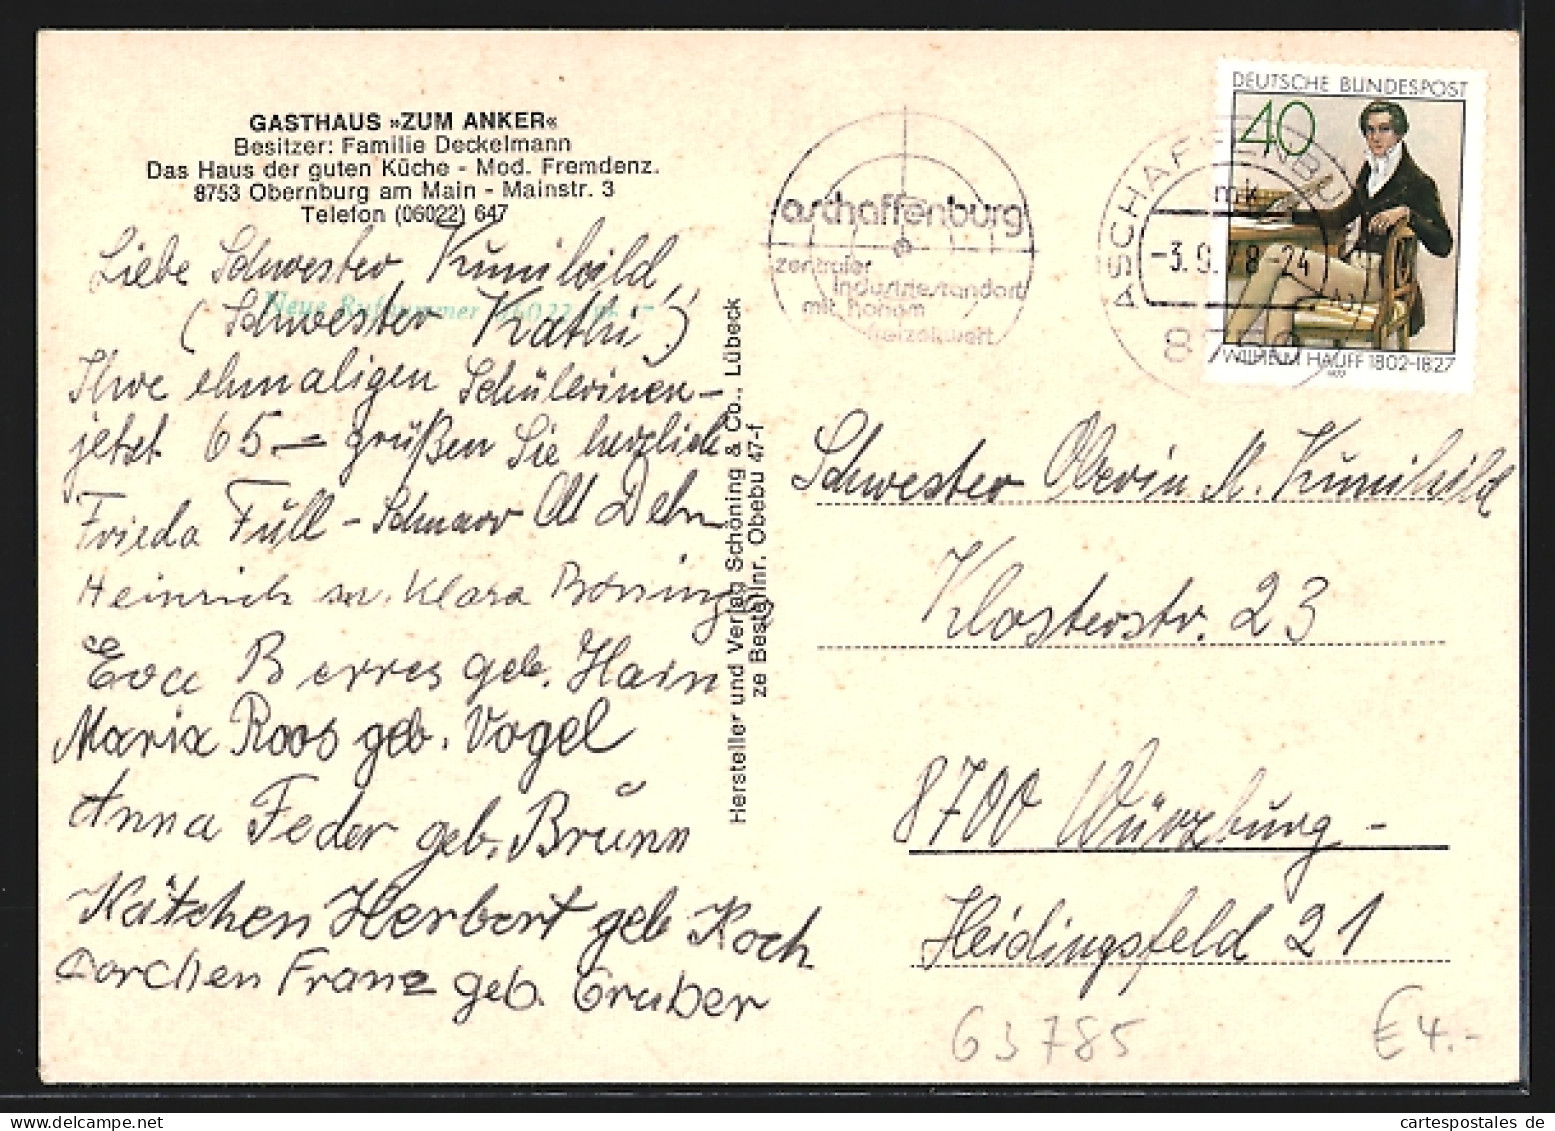 GASTHAUS »ZUM ANKER«
Besitzer: Familie Deckelmann
Das Haus der guten Küche - Mod. Fremdenz.
8753 Obernburg am Main - Mainstr. 3
Telefon (06022) 647
Neue Rufnummer
Liebe Schwester Kunihild,
(Schwester Kathi!)
Ihre ehmaligen Schülerinen -
jetzt 65 - grüßen Sie herzlich
Frieda Füll - Schnarr
Heinrich u. Klara
Eva Berres geb. Hain
Maria Roos geb. Vogel
Anna Feder geb. Brünn
Kätchen Herbert geb Koch
Dorchen Franz geb. Gruber
Hersteller und Verlag Schöning & Co., Lübeck
ze Bestellnr. Obebu 47-f
aschaffenburg
zentraler
industriestandort
mit hohem
freizeitwert
ASCHAFFENBURG
mk
-3.9.78-24
8750
DEUTSCHE BUNDESPOST
40
WILHELM HAUFF 1802-1827
1977
Schwester Oberin M. Kunihild
Klosterstr. 23
8700 Würzburg -
Heidingsfeld 21
63785
€ 4.-
cartespostales de